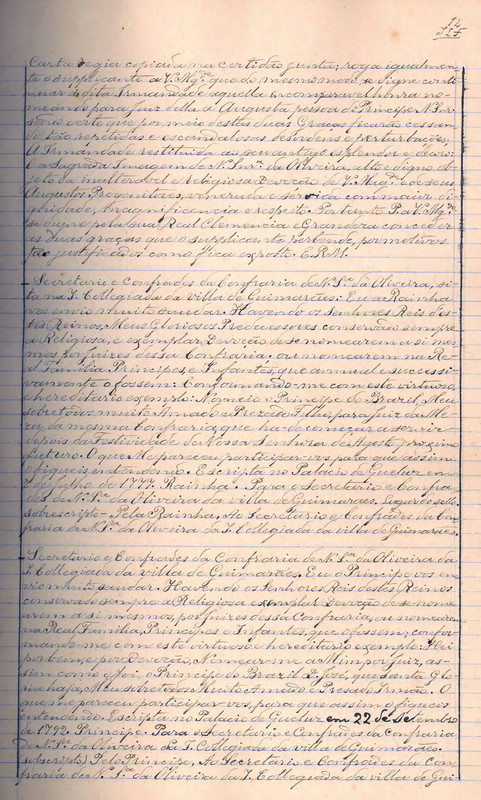 14
Carta Regia copiada na certidão junta; roga igualmen-
te o supplicante a V. Mag.e que do mesmo modo, se digne conti-
nuar á dita Irmandade aquella incomparavel honra no-
meando para Juiz della a Augusta pessoa do Principe N. Snr.
como certo que por meio destas duas Graças ficarão cessan-
do tão repetidas e escandalosas desordens e perturbações,
A Irmandade restituida ao seu antigo esplendor e decoro:
E a Sagrada Imagem de N. Snr.a da Oliveira, alto e digno ob-
jeto da inalteravel e religiosa Devoção de V. Mag.e e de seus
Augustos Progenitores, venerada e servida com maior di-
gnidade, Magnificencia e respeito. Portanto P. a V. Mag.e
se digne pela sua Real Clemencia e Grandeza conceder
as duas graças que o supplicante pertende, por motivos
tão justificados como fica exposto. E. R. M.
Secretario e Confrades da Confraria de N. S.ra da Oliveira, si-
ta na I. Collegiada da villa de Guimarães: Eu a Rainha
vos envio muito saudar. Havendo os Senhores Reis des-
tes Reinos, Meus Gloriosos Predecessores conservado sempre
a Religiosa, e exemplar Devoção de se nomearem a si mes-
mos por Juizes dessa Confraria; ou nomearem na Re-
al Familia Principes e Infantes, que annual e successi-
vamente o fossem: Conformando-me com este virtuoso,
e hereditario exemplo: Nomeio o Principe do Brazil, Meu
sobre todos muito Amado e Prezado Filho, para Juiz da Me-
za da mesma Confraria, que ha-de começar a servir
depois da Festividade de Nossa Senhora de Agosto proximo
futuro. O que Me pareceu participar-vos para que assim
o fiqueis entendendo. Escripta no Palacio de Queluz em
7 de Julho de 1777. Rainha. Para o Secretario e Confra-
des de N. S.ra da Oliveira da villa de Guimarães. Lugar do sello.
sobrescripto - Pela Rainha, Ao Secretario e Confrades da Con-
fraria de N. S.ra da Oliveira da I. Collegiada da villa de Guimarães.
Secretario e Confrades da Confraria de N. S.ra da Oliveira da
I. Collegiada da villa de Guimarães. Eu o Principe vos en-
vio muito saudar. Havendo os Senhores Reis destes Reinos
conservado sempre a Religiosa exemplar Devoção de se nome-
arem a si mesmos, por Juizes dessa Confraria, ou nomearem
na Real Familia, Principes e Infantes, que o fossem; confor-
mando-me com este virtuoso e hereditario exemplo: Hei
por bem, e por Devoção, Nomear-me a Mim por Juiz, as-
sim como o foi, o Principe do Brazil D. José, que Santa Glo-
ria haja, Meu sobre todos Muito Amado e Presado Irmão. O
que me pareceu participar-vos, para que assim o fiqueis
entendendo. Escripta no Palacio de Queluz em 22 de Setembro
de 1792. Principe. Para o Secretario e Confrades da Confraria
de N. S.ra da Oliveira da I. Collegiada da villa de Guimarães.
sobscripto) Pelo Principe, Ao Secretario e Confrades da Con-
fraria de N. S.ra da Oliveira da I. Collegiada da villa de Gui-